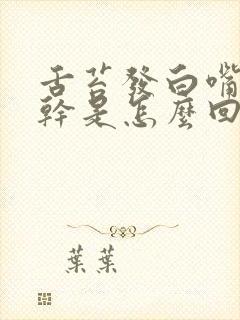 舌苔發白嘴
幹是怎麼回
葉葉